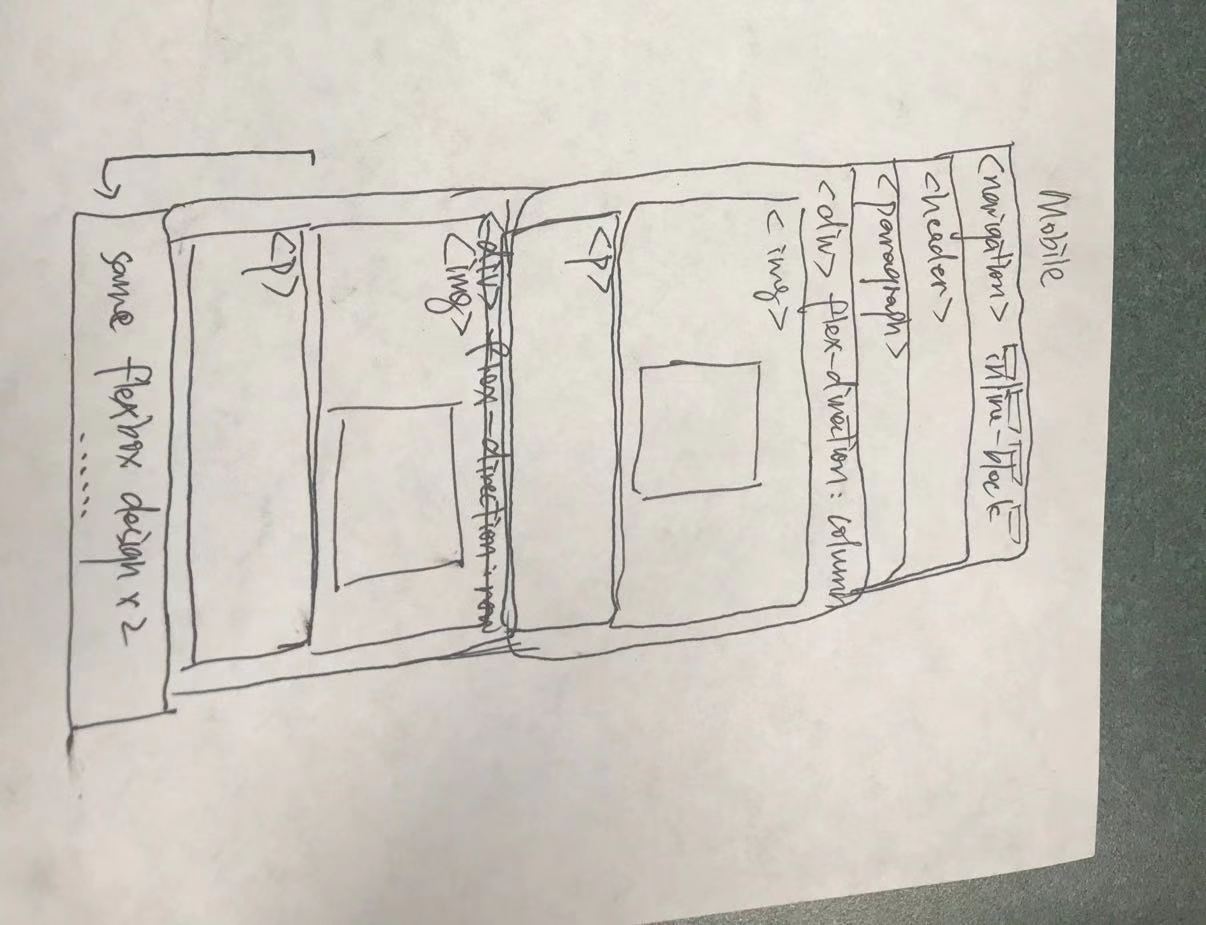 Mobile
<navigation> inline-block
<header>
<paragraph>
<div> flex-direction: column
<img>
<p>
<div> flex-direction: row
<img>
<p>
same flexbox design x 2
......